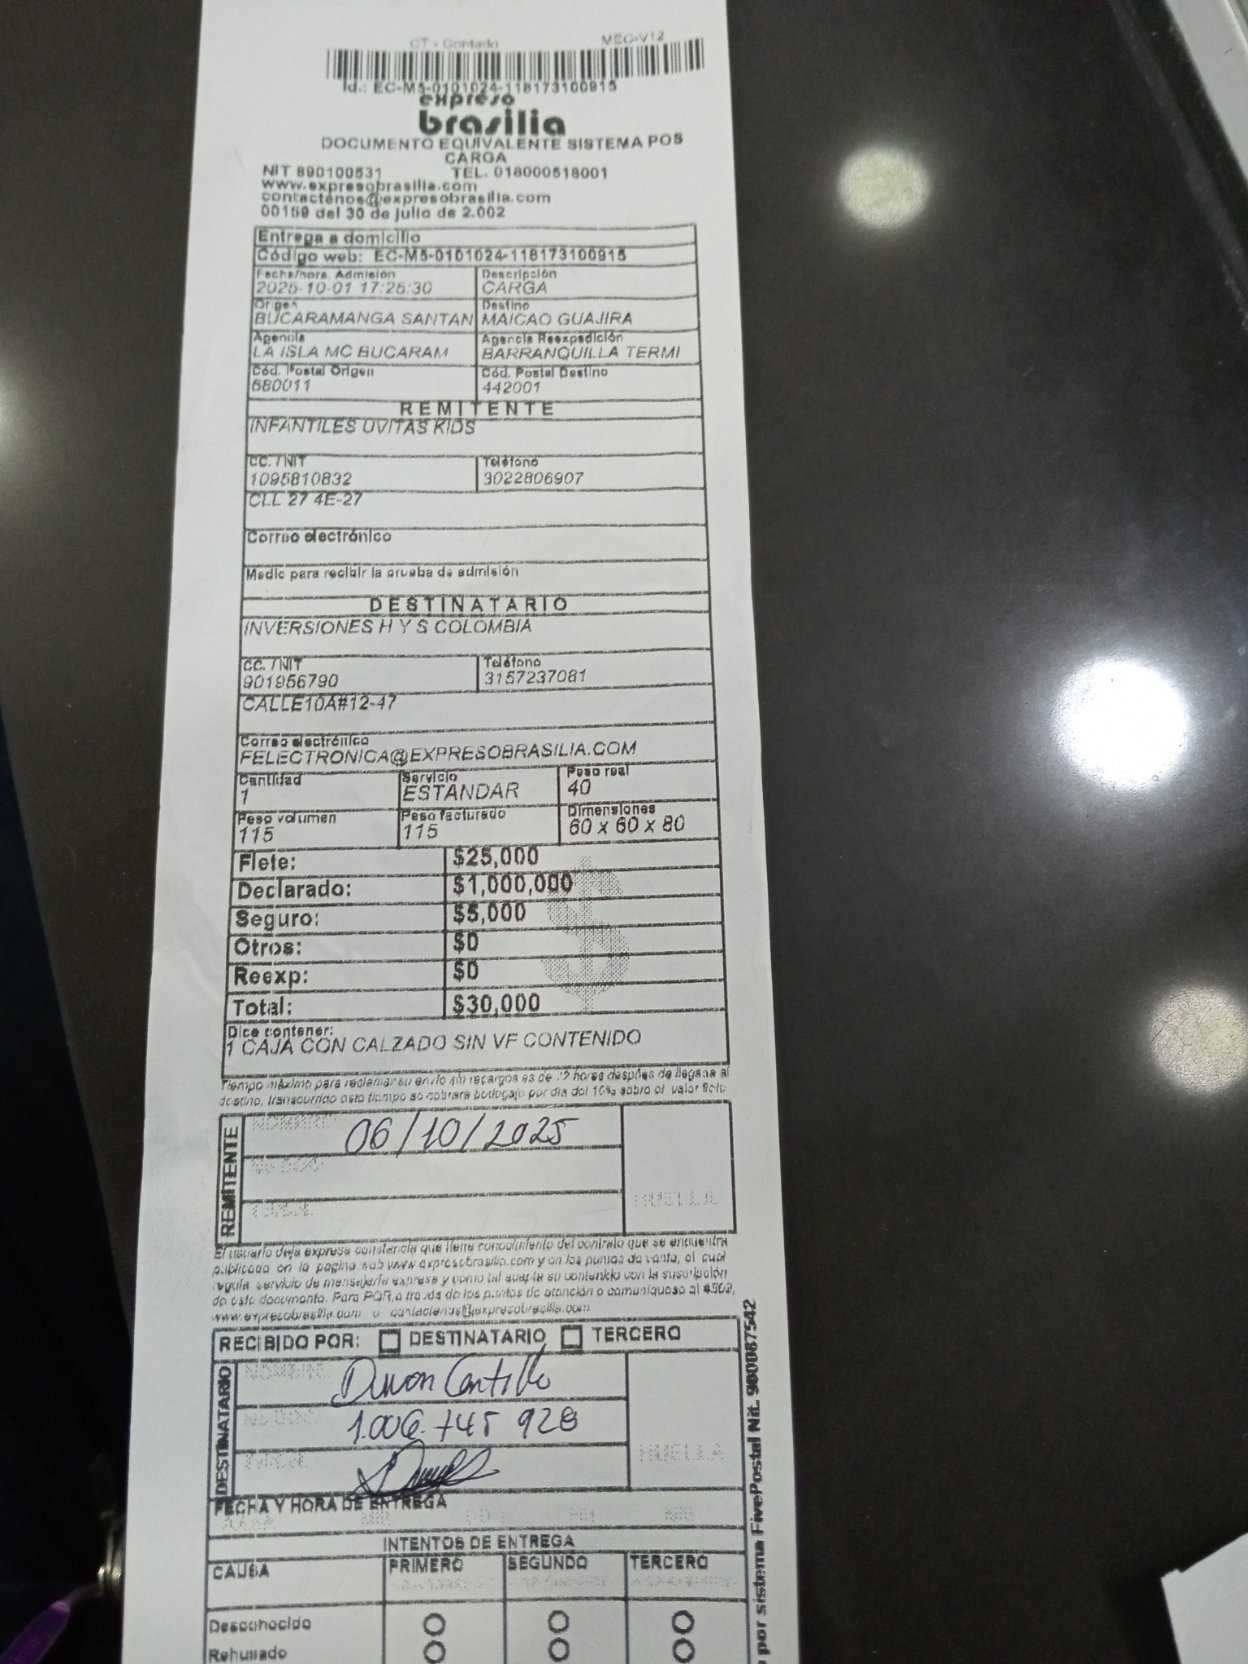 CT - Contado MEC-V12
Id.: EC-M5-0101024-118173100915
expreso
brasilia
DOCUMENTO EQUIVALENTE SISTEMA POS
CARGA
NIT 890100531 TEL. 018000518001
www.expresobrasilia.com
contactenos@expresobrasilia.com
00159 del 30 de julio de 2.002
Entrega a domicilio
Código web: EC-M5-0101024-118173100915
Fecha/hora. Admisión Descripsión
2025-10-01 17:25:30 CARGA
Origen Destino
BUCARAMANGA SANTAN MAICAO GUAJIRA
Agencia Agencia Reexpedición
LA ISLA MC BUCARAM BARRANQUILLA TERMI
Cód. Postal Origen Cód. Postal Destino
680011 442001
REMITENTE
INFANTILES UVITAS KIDS
CC. /NIT Teléfono
1095810832 3022806907
CLL 27 4E-27
Correo electrónico
Medio para recibir la prueba de admisión
DESTINATARIO
INVERSIONES H Y S COLOMBIA
CC. /NIT Teléfono
901956790 3157237081
CALLE10A#12-47
Correo electrónico
FELECTRONICA@EXPRESOBRASILIA.COM
Cantidad Servicio Peso real
1 ESTANDAR 40
Peso volumen Peso facturado Dimensiones
115 115 60 x 60 x 80
Flete: $25,000
Declarado: $1,000,000
Seguro: $5,000
Otros: $0
Reexp: $0
Total: $30,000
Dice contener:
1 CAJA CON CALZADO SIN VF CONTENIDO
Tiempo máximo para reclamar su envío sin recargos es de 72 horas despúes de llegada al
destino, transcurrido este tiempo se cobrara bodegaje por dia del 10% sobre el valor flete
REMITENTE
NOMBRE
06/10/2025
No DOC.
FIRMA
HUELLA
El usuario deja expresa constancia que tiene conocimiento del contrato que se encuentra
publicado en la pagina web www.expresobrasilia.com y en los puntos de venta, el cual
regula servicio de mensajería expresa y como tal acepta su contenido con la suscripción
de este documento. Para PQR,a través de los puntos de atención o comuniquese al #502,
www.expresobrasilia.com o contactenos@expresobrasilia.com
RECIBIDO POR: DESTINATARIO TERCERO
DESTINATARIO
NOMBRE
Cantillo
No DOC.
1.006.745 928
FIRMA
HUELLA
FECHA Y HORA DE ENTREGA
INTENTOS DE ENTREGA
CAUSA PRIMERO SEGUNDO TERCERO
Desconocido
Rehusado
por sistema FivePostal Nit. 900087542